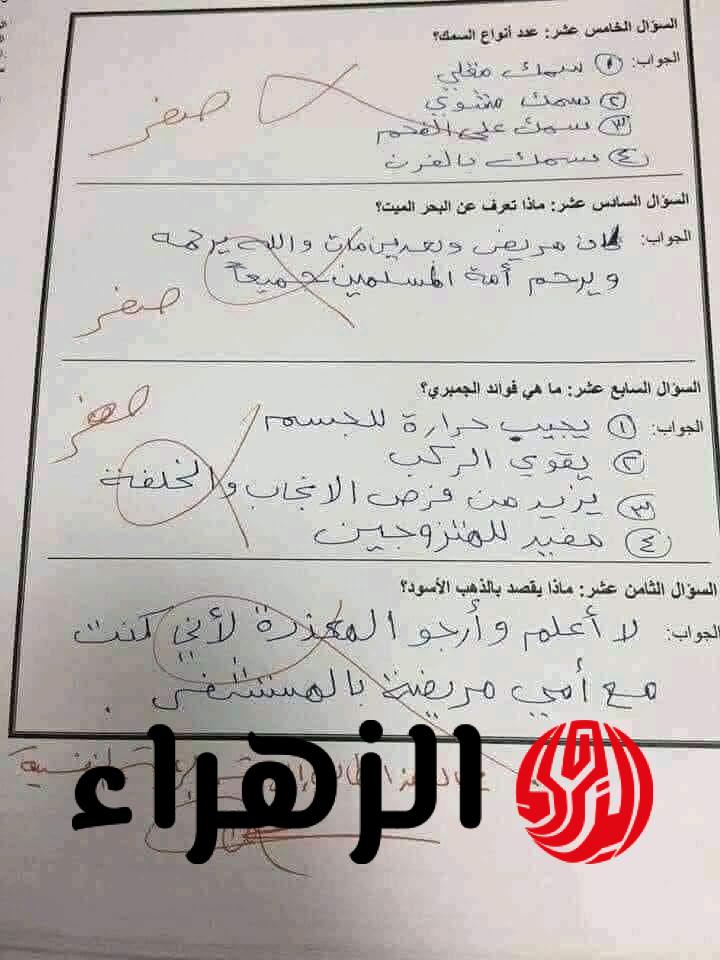 السؤال الخامس عشر: عدد أنواع السمك؟
الجواب: ١ سمك مقلي
٢ سمك مشوي
٣ سمك على الفحم
٤ سمك بالفرن
صفر
السؤال السادس عشر: ماذا تعرف عن البحر الميت؟
الجواب: كان مريض وبعدين مات والله يرحمه
ويرحم أمة المسلمين جميعاً
صفر
السؤال السابع عشر: ما هي فوائد الجمبري؟
الجواب: ١ يجيب حرارة للجسم
٢ يقوي الركب
٣ يزيد من فرص الانجاب والخلفة
٤ مفيد للمتزوجين
صفر
السؤال الثامن عشر: ماذا يقصد بالذهب الأسود؟
الجواب: لا أعلم وأرجو المعذرة لأني كنت
مع أمي مريضة بالمستشفى.
الزهراء